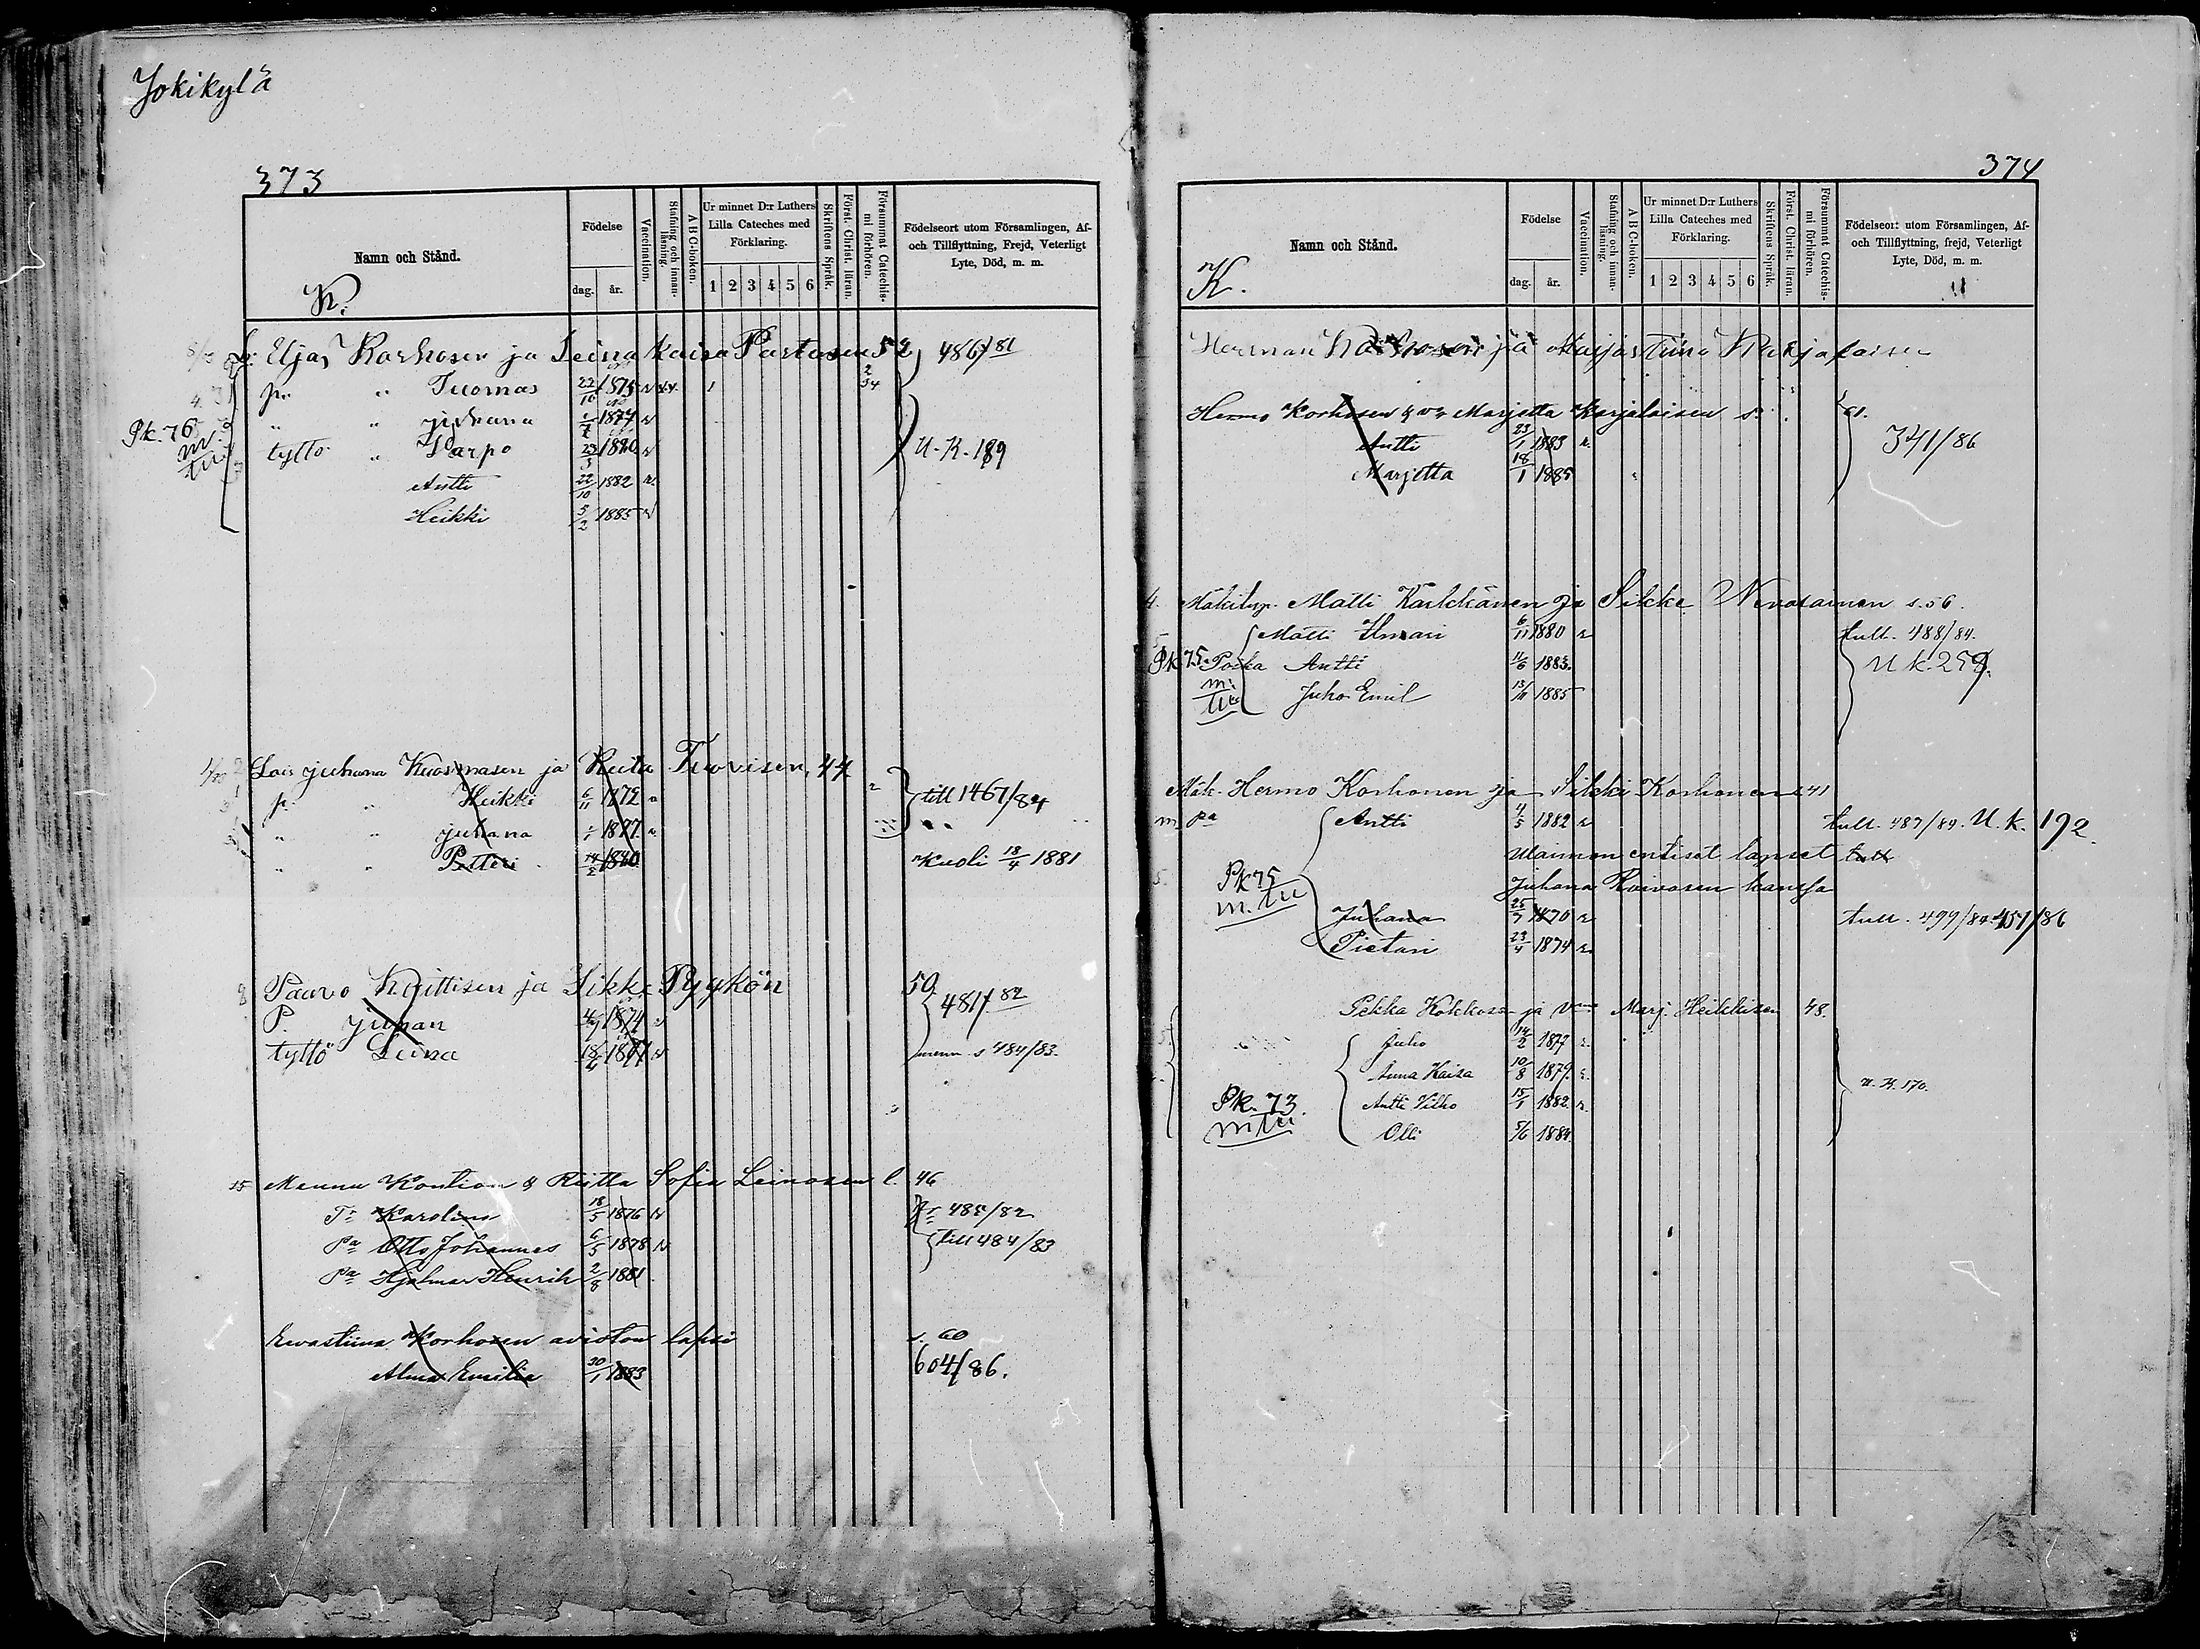 Jokikylä
373
Namn och Stånd.
K.
Födelse
dag.
år.
Vaccination.
Stafning och innanläsning.
ABC-boken.
Ur minnet D:r Luthers Lilla Cateches med Förklaring.
1 2 3 4 5 6
Skriftens Språk.
Först. Christ. läran.
Försummat Catechismi förhören.
Födelseort utom Församlingen, Af- och Tillflyttning, Frejd, Veterligt Lyte, Död, m. m.
Eljas Korhosen ja Leina Kaisa Partasen 52 486/81
p. " Tuomas 22/10 1875
" " juhana 1877
Pk. 76.
tyttö " Varpo 1880 U.K. 189
Antti 22/10 1882
Heikki 3/2 1885
Lois juhana Kuosmasen ja Reita Tuovisen, 44
p. " Heikki 6/11 1872 till 1467/84
" " juhana 1877
" " Petteri 14/2 1880 Kuoli 18/4 1881
Paavo Knittisen ja Sikke Pyykön 50
P. juhan 1874 481/82
tyttö Leena 1877 menn s 484/83.
Mennu Kontion & Riitta Sofia Leinosen l. 46
Tr Karolina 18/5 1876 485/82
Pa Otto Johannes 6/5 1878 till 484/83
Pa Hjalmar Henrik 2/8 1881
Evastiina Korhosen avioton lapsi s. 60
Alma Emilia 30/1 1883 604/86.
374
Namn och Stånd.
K.
Födelse
dag.
år.
Vaccination.
Stafning och innanläsning.
ABC-boken.
Ur minnet D:r Luthers Lilla Cateches med Förklaring.
1 2 3 4 5 6
Skriftens Språk.
Först. Christ. läran.
Försummat Catechismi förhören.
Födelseort utom Församlingen, Af- och Tillflyttning, frejd, Veterligt Lyte, Död, m. m.
Herman Korhosen ja Marjastiina Karjalaisen
Hermo Korhosen & vo Marjetta Karjalaisen s. 61.
Antti 23/1 1883 341/86
Marjetta 18/1 1885
Mäkitup. Matti Karkkänen ja Sikke s. 56.
Matti Ilmari 6/11 1880 tull. 488/84.
Pk 75. Poika Antti 11/6 1883. U k. 259.
Juho Emil 13/11 1885
Mäk. Hermo Korhonen ja Sikki Korhonen s 41
pa Antti 4/5 1882 tull. 487/84. U. k. 192.
Waimon entiset lapset tull
Pk 75 Juhana Roivosen kanssa
Juhana 25/7 1870 tull. 499/84 451/86
Pietari 23/4 1874
Pekka Kokkosen ja Vmo Marj. Heikkisen 48.
Juho 14/2 1877
Anna Kaisa 10/8 1879. U. K. 170.
Pk. 73. Antti Vilho 15/1 1882
Olli 5/6 1884.